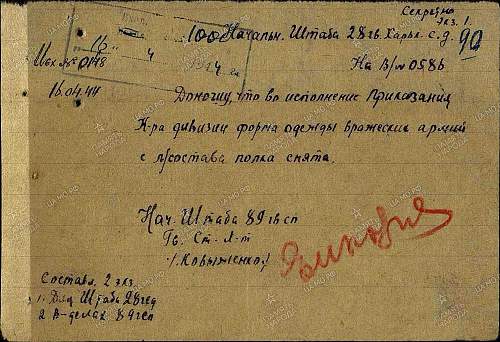 Секретно
Экз. 1.
Начальн. Штаба 28 гв. Харьк. с.д.
90
16
4
Исх. № 0148
На В/№ 0586
16.04.44
Доношу, что во исполнение Приказания
К-ра дивизии форма одежды вражеских армий
с л/состава полка снята.
Нач. Штаба 89 гв сп
Гв. Ст. Л-т
/Ковыженко/
Составл. 2 экз.
1. Для Штаба 28 гсд
2. В дела 89 гсп